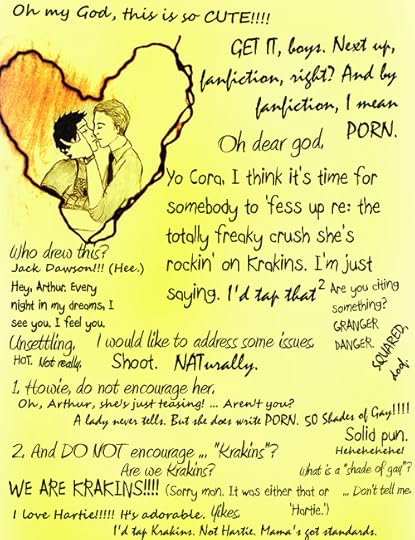 Oh my God, this is so CUTE!!!!
GET IT, boys. Next up,
fanfiction, right? And by
fanfiction, I mean
PORN.
Oh dear god,
Yo Cora, I think it's time for
somebody to 'fess up re: the
totally freaky crush she's
rockin' on Krakins. I'm just
saying. I'd tap that²
Who drew this?
Jack Dawson!!! (Hee.)
Hey, Arthur. Every
night in my dreams, I
see you, I feel you.
Unsettling,
HOT. Not really,
Are you citing
something?
GRANGER
DANGER.
SQUARED,
doof.
I would like to address some issues,
Shoot. NATurally.
1. Howie, do not encourage her,
Oh, Arthur, she's just teasing! ... Aren't you?
A lady never tells. But she does write PORN. 50 Shades of Gay!!!!
Solid pun.
Hehehehehe!
2. And DO NOT encourage ... "Krakins"?
Are we Krakins?
What is a "shade of gay"?
WE ARE KRAKINS!!!! (Sorry man. It was either that or
'Hartie.')
... Don't tell me.
I love Hartie!!!!! It's adorable. Yikes,
I'd tap Krakins. Not Hartie. Mama's got standards.